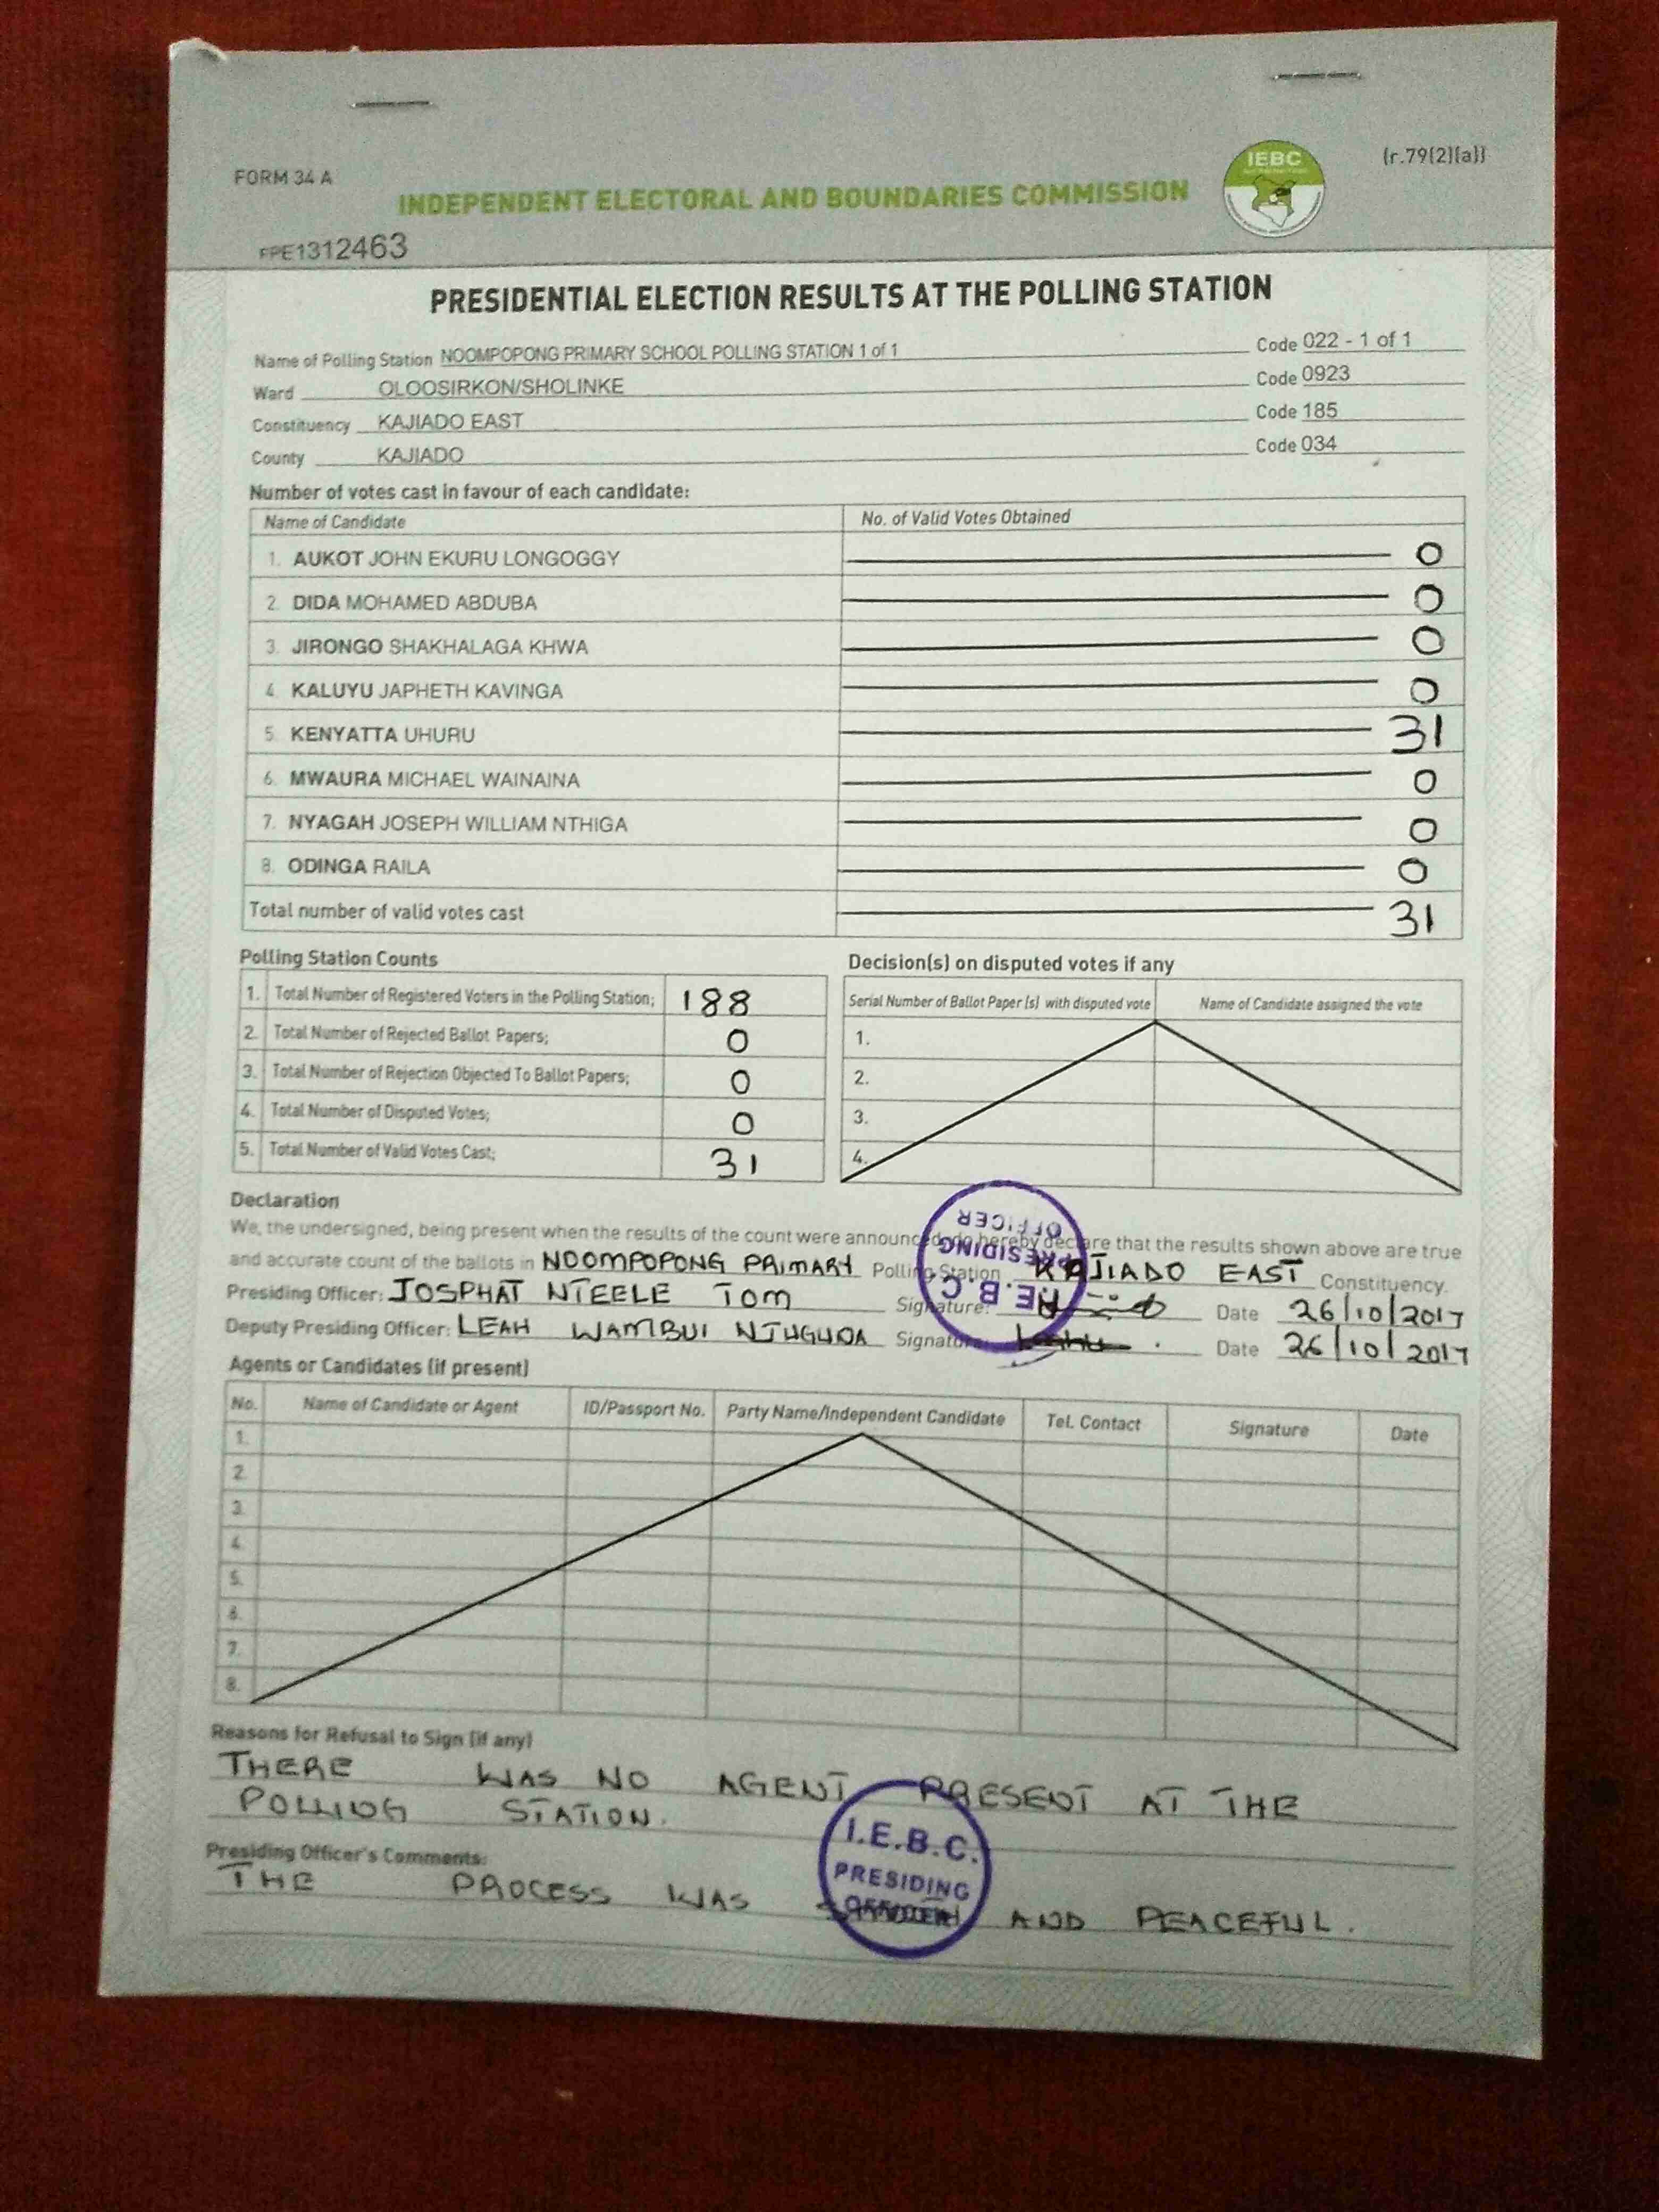 FORM 34 A
IEBC
(r.79(2)(a))
INDEPENDENT ELECTORAL AND BOUNDARIES COMMISSION
FPE1312463
PRESIDENTIAL ELECTION RESULTS AT THE POLLING STATION
Name of Polling Station NOOMPOPONG PRIMARY SCHOOL POLLING STATION 1 of 1 Code 022 - 1 of 1
Ward OLOOSIRKON/SHOLINKE Code 0923
Constituency KAJIADO EAST Code 185
County KAJIADO Code 034
Number of votes cast in favour of each candidate:
Name of Candidate No. of Valid Votes Obtained
1. AUKOT JOHN EKURU LONGOGGY 0
2. DIDA MOHAMED ABDUBA 0
3. JIRONGO SHAKHALAGA KHWA 0
4. KALUYU JAPHETH KAVINGA 0
5. KENYATTA UHURU 31
6. MWAURA MICHAEL WAINAINA 0
7. NYAGAH JOSEPH WILLIAM NTHIGA 0
8. ODINGA RAILA 0
Total number of valid votes cast 31
Polling Station Counts
1. Total Number of Registered Voters in the Polling Station; 188
2. Total Number of Rejected Ballot Papers; 0
3. Total Number of Rejection Objected To Ballot Papers; 0
4. Total Number of Disputed Votes; 0
5. Total Number of Valid Votes Cast; 31
Decision(s) on disputed votes if any
Serial Number of Ballot Paper (s) with disputed vote Name of Candidate assigned the vote
1.
2.
3.
4.
Declaration
We, the undersigned, being present when the results of the count were announced, do hereby declare that the results shown above are true
and accurate count of the ballots in NOOMPOPONG PRIMARY Polling Station KAJIADO EAST Constituency.
Presiding Officer: JOSPHAT NTEELE TOM Signature: Date 26/10/2017
Deputy Presiding Officer: LEAH WAMBUI Signature: Date 26/10/2017
I.E.B.C.
PRESIDING
OFFICER
Agents or Candidates (if present)
No. Name of Candidate or Agent ID/Passport No. Party Name/Independent Candidate Tel. Contact Signature Date
1.
2.
3.
4.
5.
6.
7.
8.
Reasons for Refusal to Sign (if any)
THERE WAS NO AGENT PRESENT AT THE
POLLING STATION.
Presiding Officer's Comments:
THE PROCESS WAS AND PEACEFUL.
I.E.B.C.
PRESIDING
OFFICER